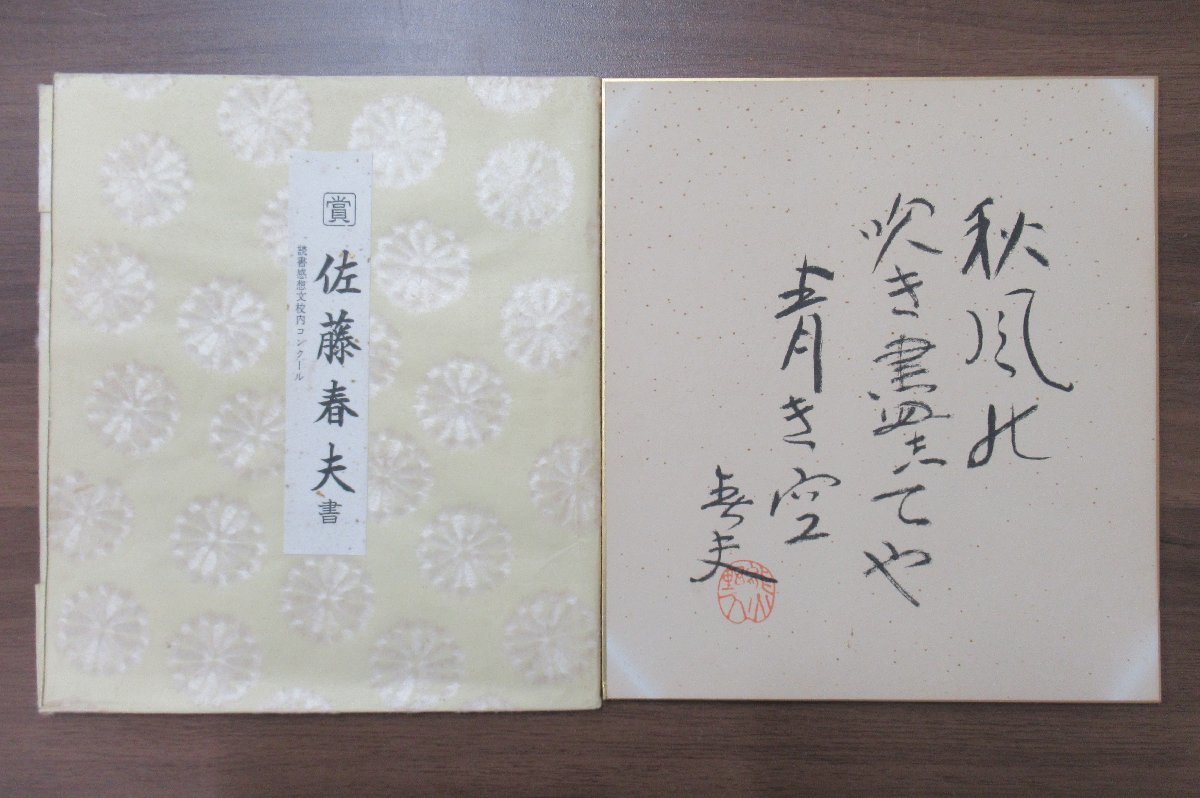 賞
佐藤春夫書
読書感想文校内コンクール
秋風の
吹き盡してや
青き空
春夫